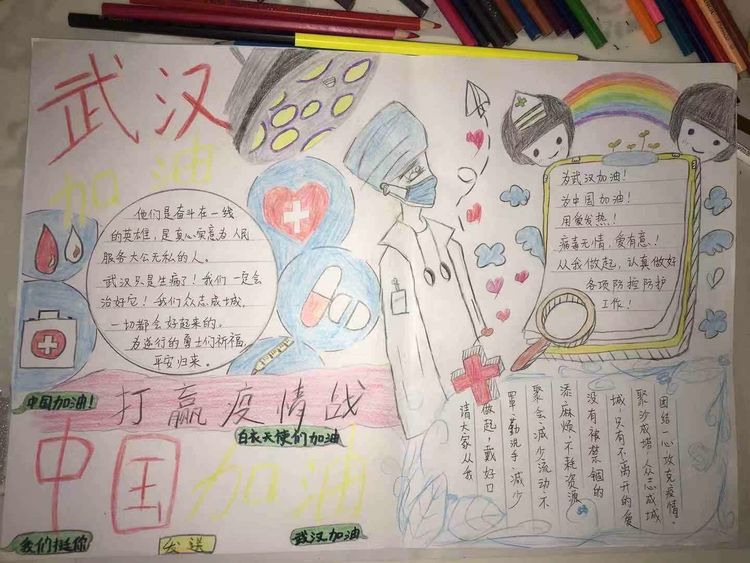 武汉
加油
他们是奋斗在一线
的英雄,是真心实意为人民
服务大公无私的人。
武汉只是生病了!我们一定会
治好它!我们众志成城,
一切都会好起来的。
为逆行的勇士们祈福,
平安归来。
中国加油!
打赢疫情战
白衣天使们加油
中国加油
我们挺你
发送
武汉加油
为武汉加油!
为中国加油!
用爱发热!
病毒无情,爱有意!
从我做起,认真做好
各项防控防护
工作!
团结一心攻克疫情。
聚沙成塔,众志成城
城,只有不离开的爱
没有被禁锢的
添麻烦,不耗资源
聚会,减少流动,不
罩,勤洗手,减少
做起,戴好口
请大家从我